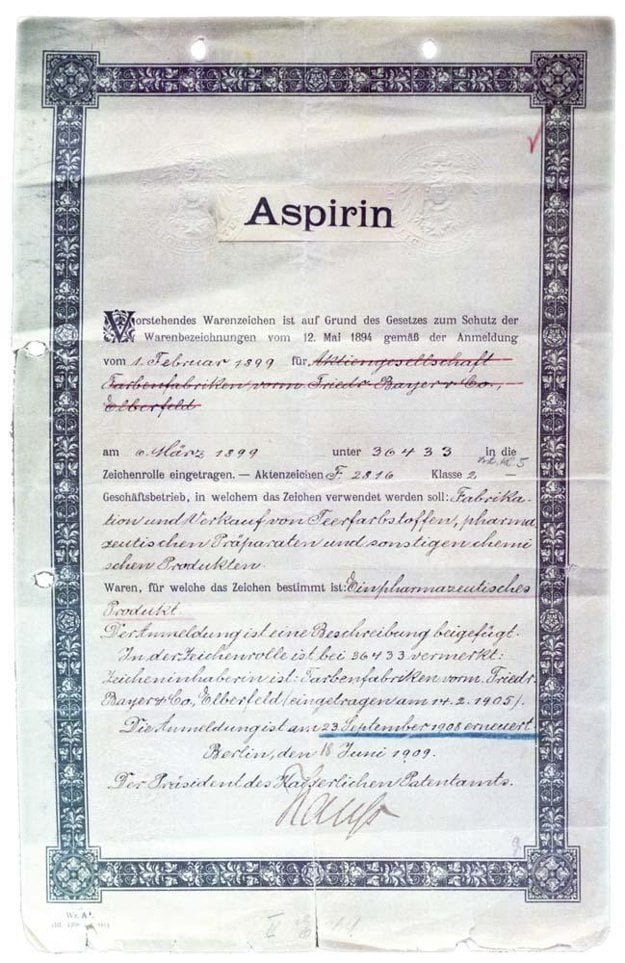 Aspirin
Vorstehendes Warenzeichen ist auf Grund des Gesetzes zum Schutz der
Warenbezeichnungen vom 12. Mai 1894 gemäß der Anmeldung
vom 1. Februar 1899 für Aktiengesellschaft
Farbenfabriken vorm. Friedr. Bayer & Co.,
Elberfeld
am 6. März 1899 unter 36433 in die
Zeichenrolle eingetragen. — Aktenzeichen F. 2816 Klasse 2 —
Geschäftsbetrieb, in welchem das Zeichen verwendet werden soll: Fabrika-
tion und Verkauf von Teerfarbstoffen, pharma
zeutischen Präparaten und sonstigen chemi
schen Produkten.
Waren, für welche das Zeichen bestimmt ist: Ein pharmazeutisches
Produkt.
Der Anmeldung ist eine Beschreibung beigefügt.
In der Zeichenrolle ist bei 36433 vermerkt:
Zeicheninhaberin ist: Farbenfabriken vorm. Friedr.
Bayer & Co., Elberfeld /eingetragen am 14.2.1905/.
Die Anmeldung ist am 23. September 1908 erneuert.
Berlin, den 18 Juni 1909.
Der Präsident des Kaiserlichen Patentamts.